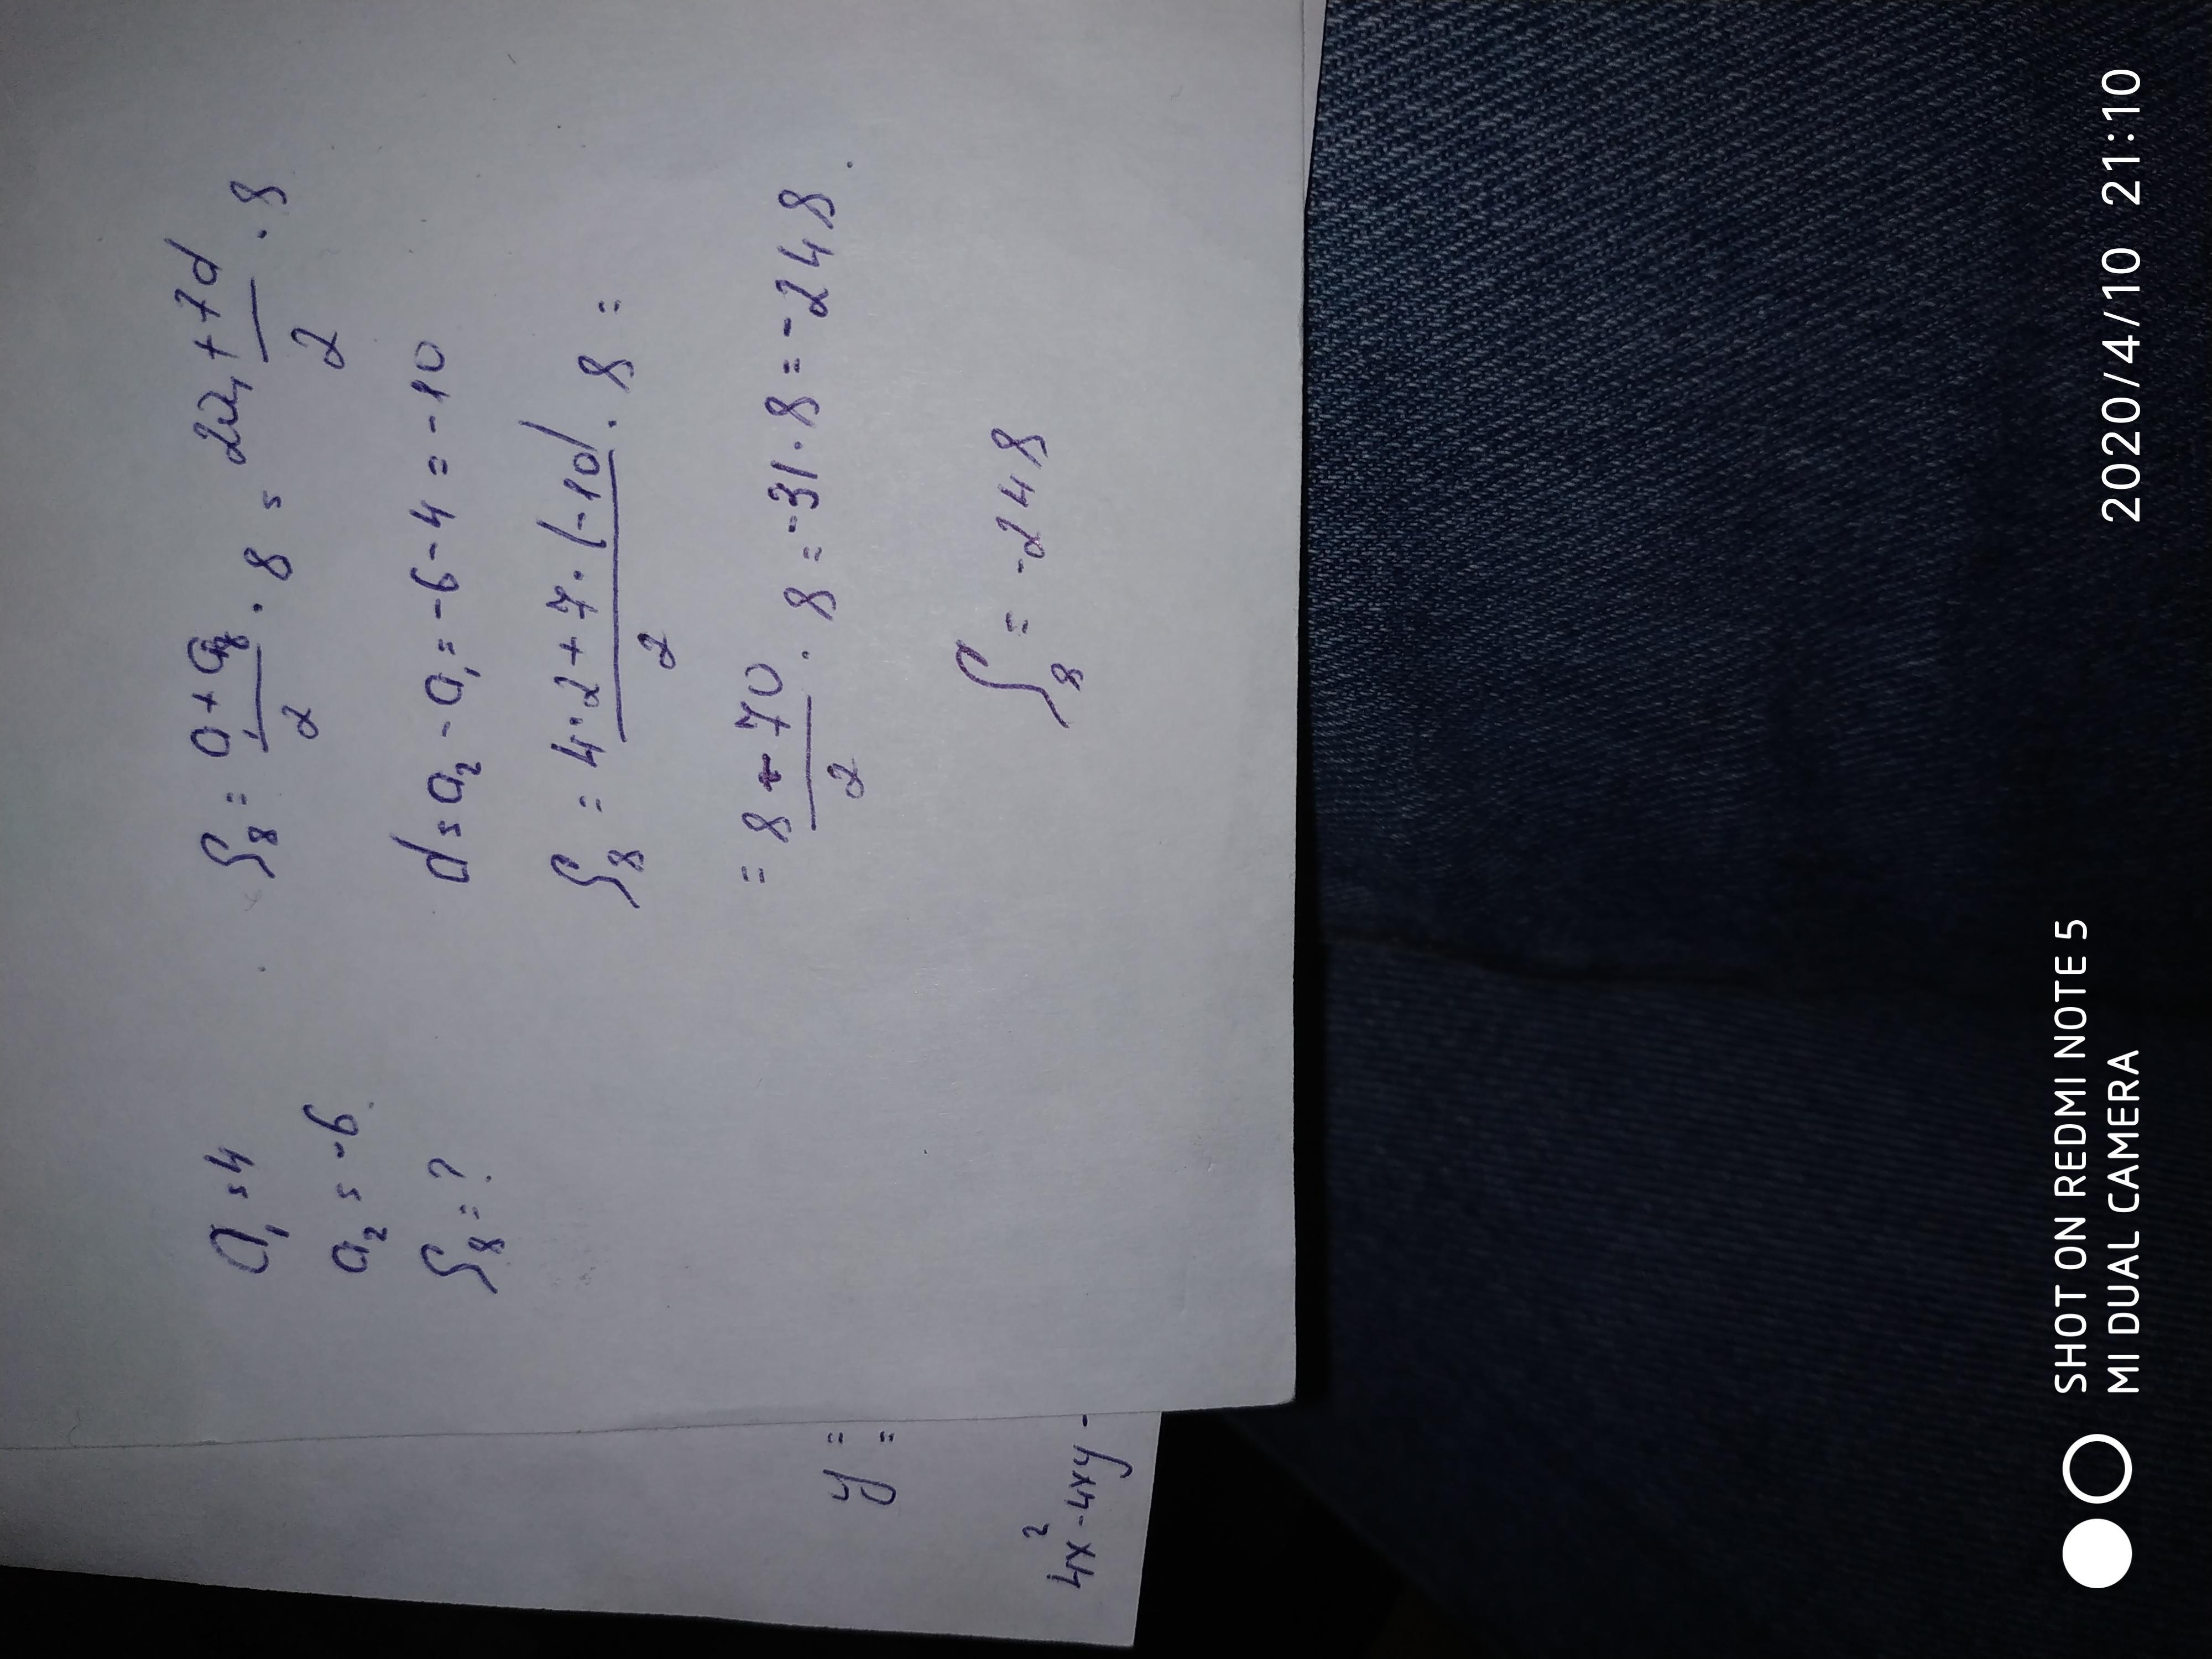 a₁ = 4
a₂ = -6
S₈ = ?
S₈ = (a₁ + a₈)/2 · 8 = (2a₁ + 7d)/2 · 8
d = a₂ - a₁ = -6 - 4 = -10
S₈ = (4·2 + 7·(-10))/2 · 8 =
= (8 - 70)/2 · 8 = -31 · 8 = -248.
S₈ = -248
y =
=
4x² - 4xy -
SHOT ON REDMI NOTE 5
MI DUAL CAMERA
2020/4/10 21:10